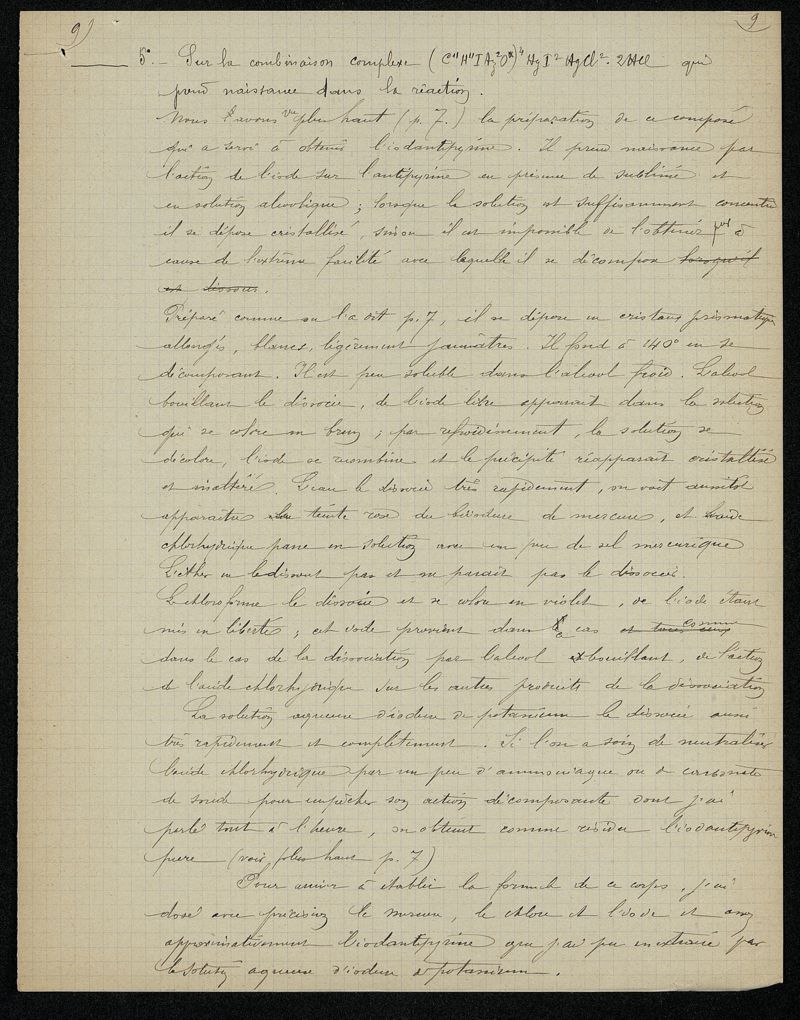 9)
9
5° - Sur la combinaison complexe (C¹¹H¹¹IAz²O²)⁴HgI²HgCl².2HCl qui
prend naissance dans la réaction.
Nous avons vu plus haut (p. 7.) la préparation de ce composé
qui a servi à obtenir l'iodantipyrine. Il prend naissance par
l'action de l'iode sur l'antipyrine en présence de sublimé et
en solution alcoolique ; lorsque la solution est suffisamment concentrée
il se dépose cristallisé, sinon il est impossible de l'obtenir à
cause de l'extrême facilité avec laquelle il se décompose lorsqu'il
est dissous.
Préparé comme on l'a dit p. 7, il se dépose en cristaux prismatiques
allongés, blancs, légèrement jaunâtres. Il fond à 140° en se
décomposant. Il est peu soluble dans l'alcool froid. L'alcool
bouillant le dissocie, de l'iode libre apparait dans la solution
qui se colore en brun ; par refroidissement, la solution se
décolore, l'iode se recombine et le précipité réapparait cristallisé
et inaltéré. L'eau le dissocie très rapidement, on voit aussitôt
apparaitre la teinte rose du biiodure de mercure, et l'acide
chlorhydrique passe en solution avec un peu de sel mercurique
L'éther ne le dissout pas et ne parait pas le dissocier.
Le chloroforme le dissocie et se colore en violet, de l'iode étant
mis en liberté ; cet iode provient dans ce cas et tous ceux comme
dans le cas de la dissociation par l'alcool bouillant, de l'action
de l'acide chlorhydrique sur les autres produits de la dissociation
La solution aqueuse d'iodure de potassium le dissocie aussi
très rapidement et complètement. Si l'on a soin de neutraliser
l'acide chlorhydrique par un peu d'ammoniaque ou de carbonate
de soude pour empêcher son action décomposante dont j'ai
parlé tout à l'heure, on obtient comme résidu l'iodantipyrine
pure (voir plus haut p. 7)
Pour arriver à établir la formule de ce corps, j'ai
dosé avec précision le mercure, le chlore et l'iode et assez
approximativement l'iodantipyrine que j'ai pu en extraire par
la solution aqueuse d'iodure de potassium.